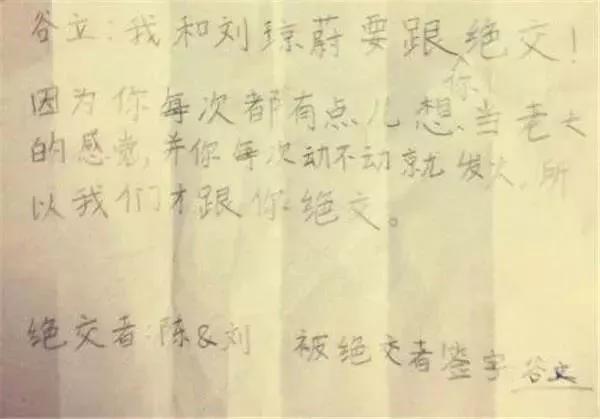 谷立：我和刘琼蔚要跟你绝交！
因为你每次都有点儿想当老大
的感觉，并你每次动不动就发火，所
以我们才跟你绝交。
绝交者：陈&刘 被绝交者签字 谷立